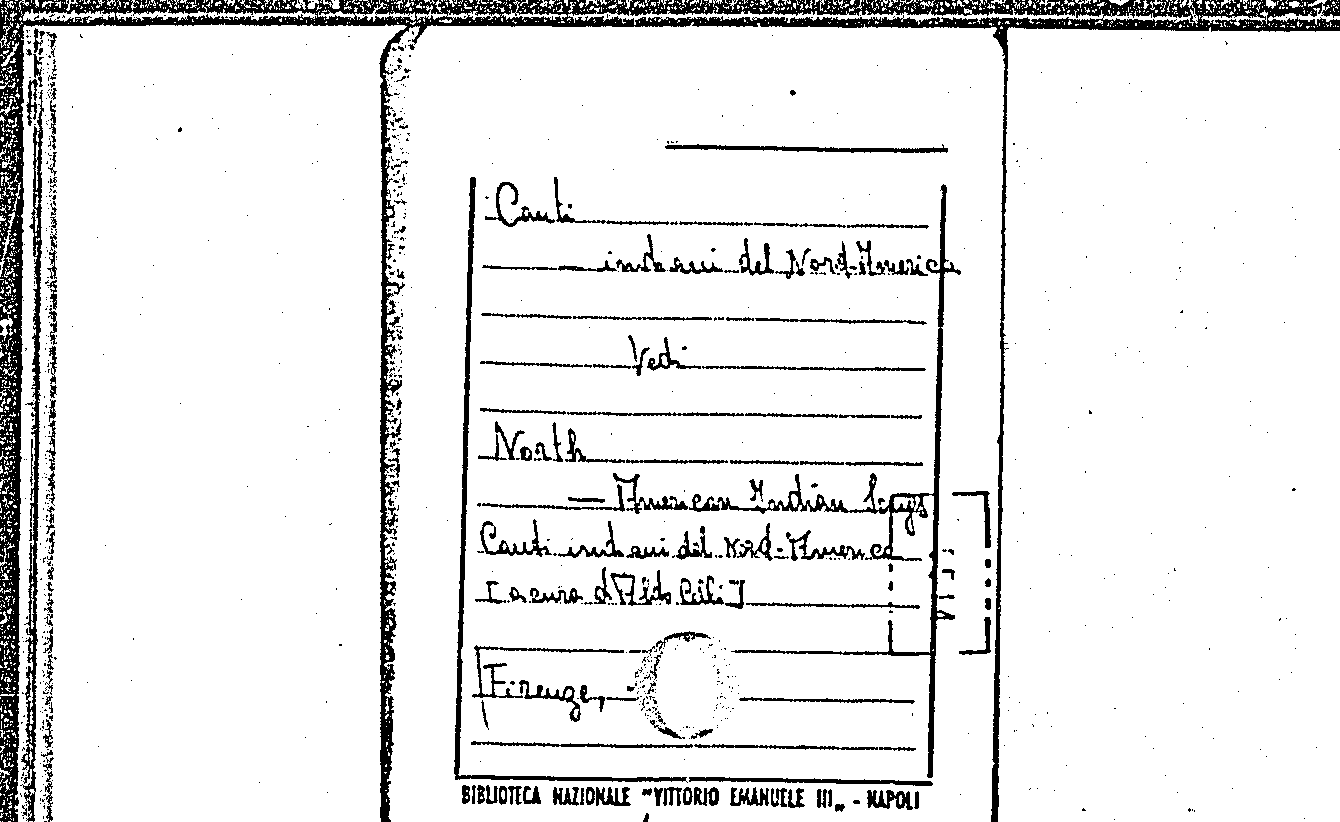 Canti
indiani del Nord-America
Vedi
North
— American Indian Songs
Canti indiani del Nord-America
[a cura d'Aldo Celli]
Firenze,
BIBLIOTECA NAZIONALE "VITTORIO EMANUELE III„ - NAPOLI